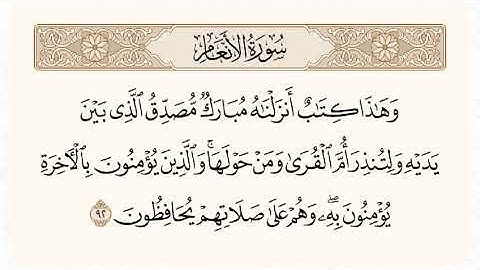 سُورَةُ الأَنْعَامِ
وَهَٰذَا كِتَٰبٌ أَنزَلْنَٰهُ مُبَارَكٌ مُّصَدِّقُ ٱلَّذِى بَيْنَ
يَدَيْهِ وَلِتُنذِرَ أُمَّ ٱلْقُرَىٰ وَمَنْ حَوْلَهَا ۚ وَٱلَّذِينَ يُؤْمِنُونَ بِٱلْءَاخِرَةِ
يُؤْمِنُونَ بِهِۦ ۖ وَهُمْ عَلَىٰ صَلَاتِهِمْ يُحَافِظُونَ ٩٢